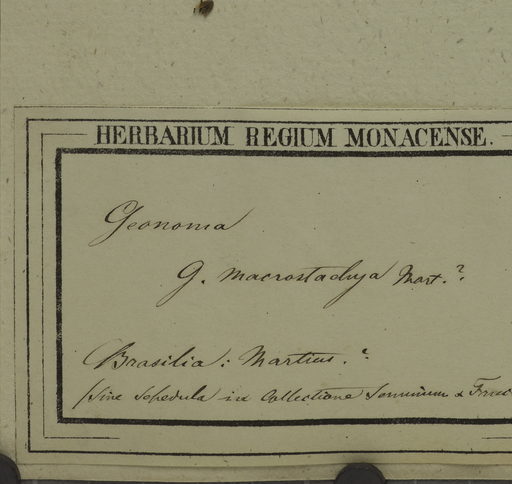 HERBARIUM REGIUM MONACENSE.
Geonoma
G. macrostachya Mart.?
Brasilia: Martius.?
Sine Schedula in Collectione